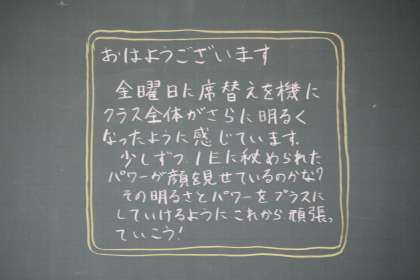 おはようございます
金曜日に席替えを機に
クラス全体がさらに明るく
なったように感じています。
少しずつ1Eに秘められた
パワーが顔を見せているのかな?
その明るさとパワーをプラスに
していけるようにこれから頑張っ
ていこう!